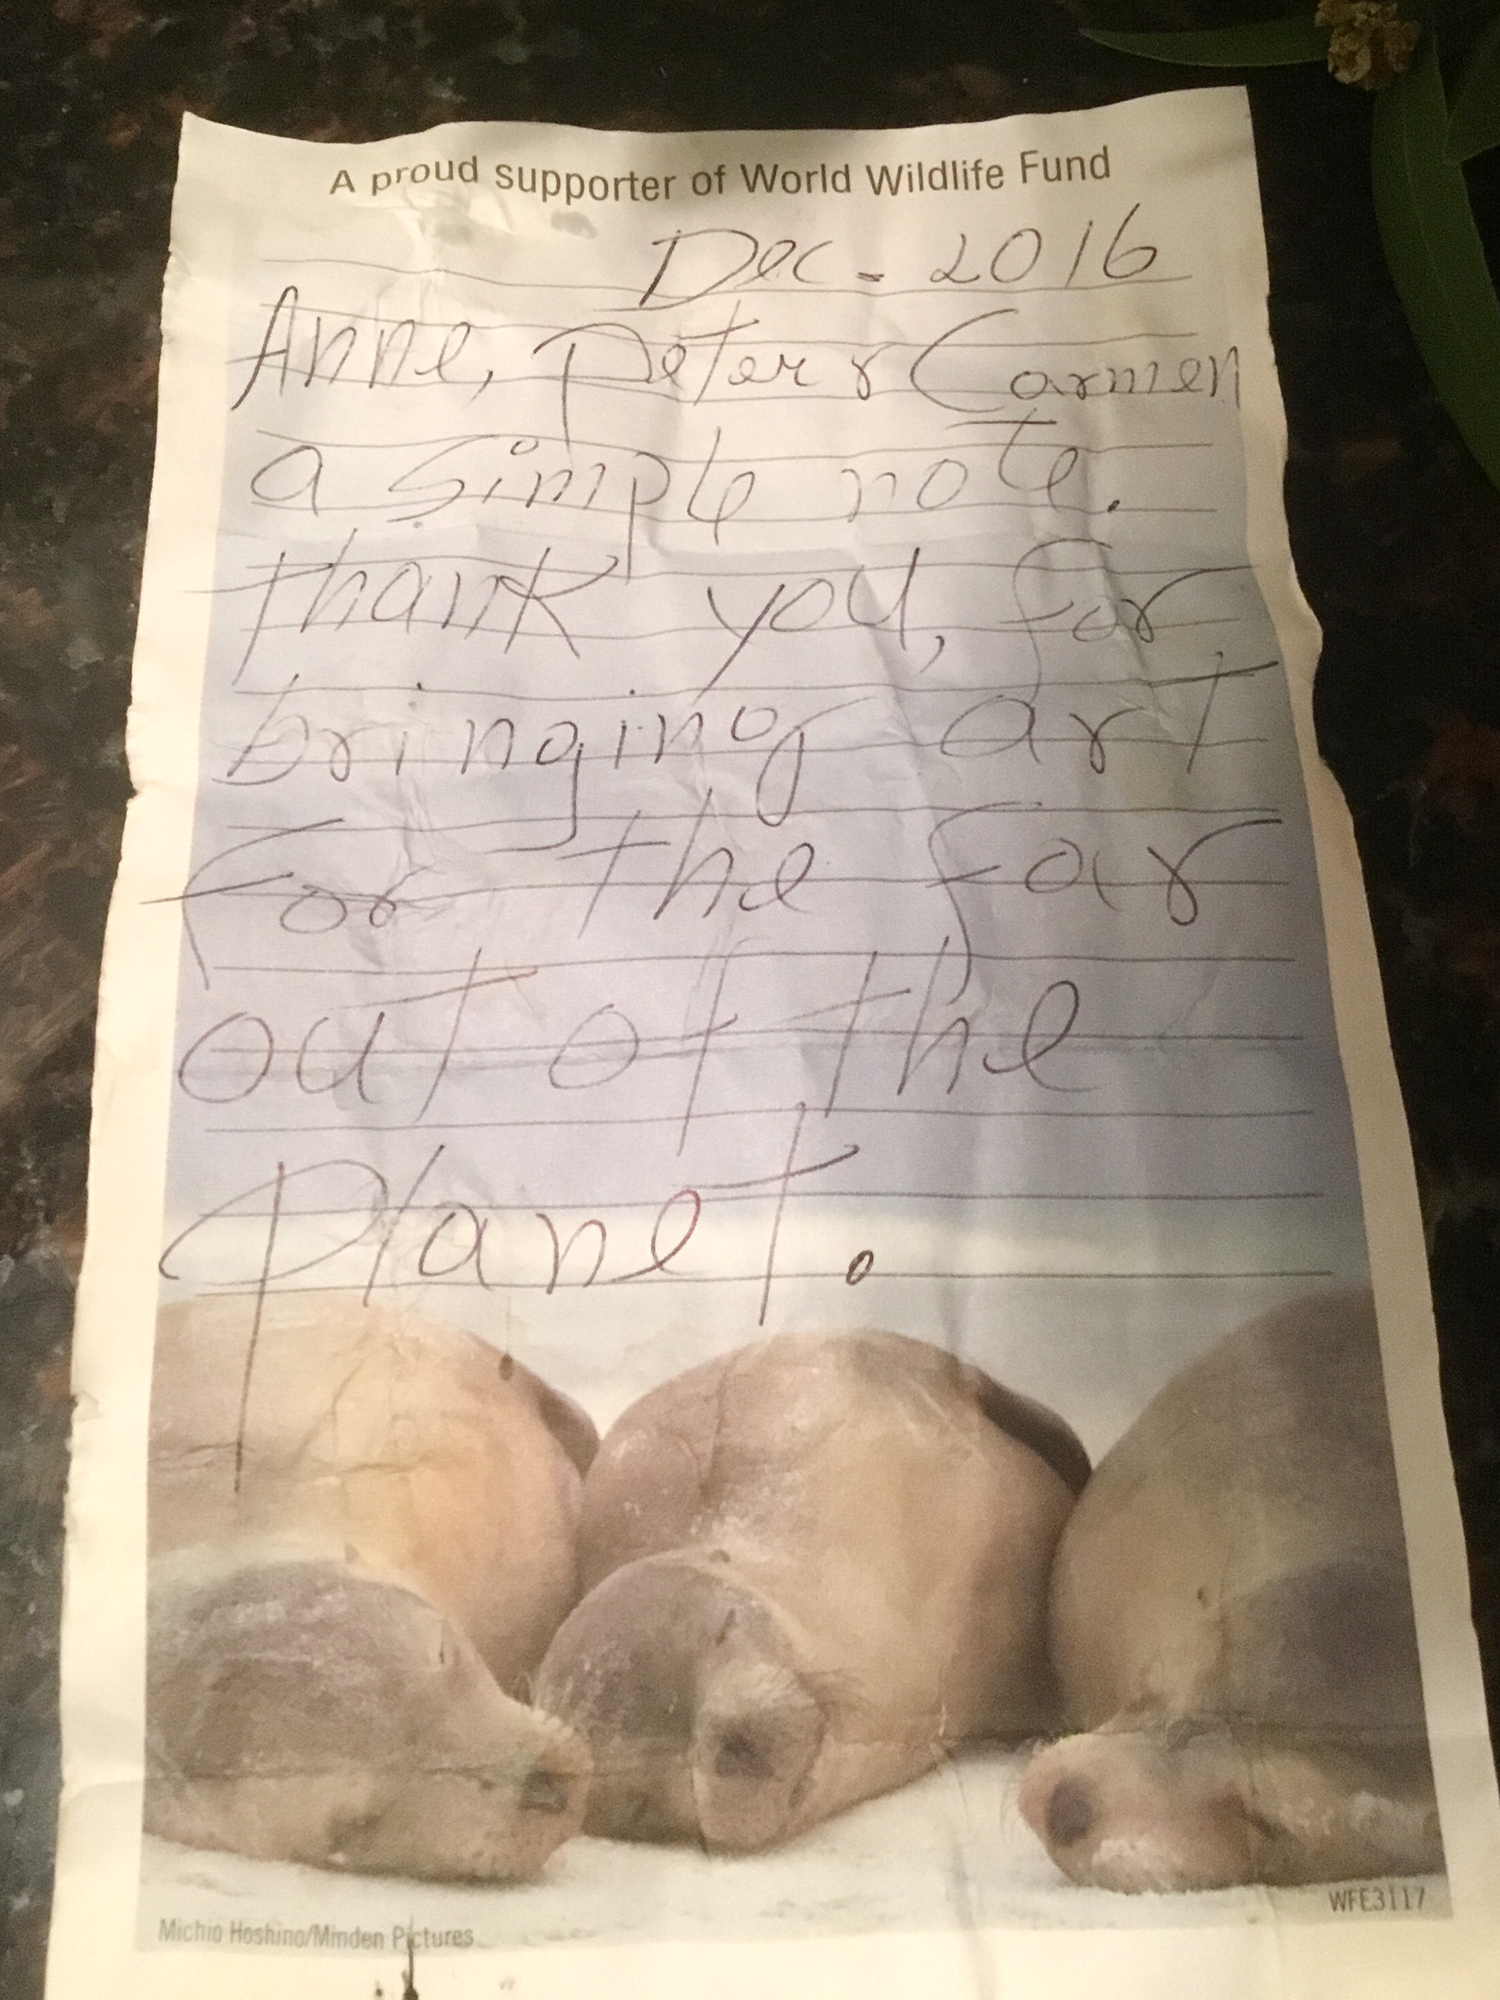 A proud supporter of World Wildlife Fund
Dec - 2016
Anne, Peter & Carmen
a simple note.
thank you, for
bringing art
for the far
out of the
planet.
WFE3117
Michio Hoshino/Minden Pictures